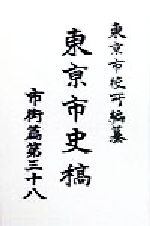 東京市役所編纂
東京市史稿
市街篇第三十八